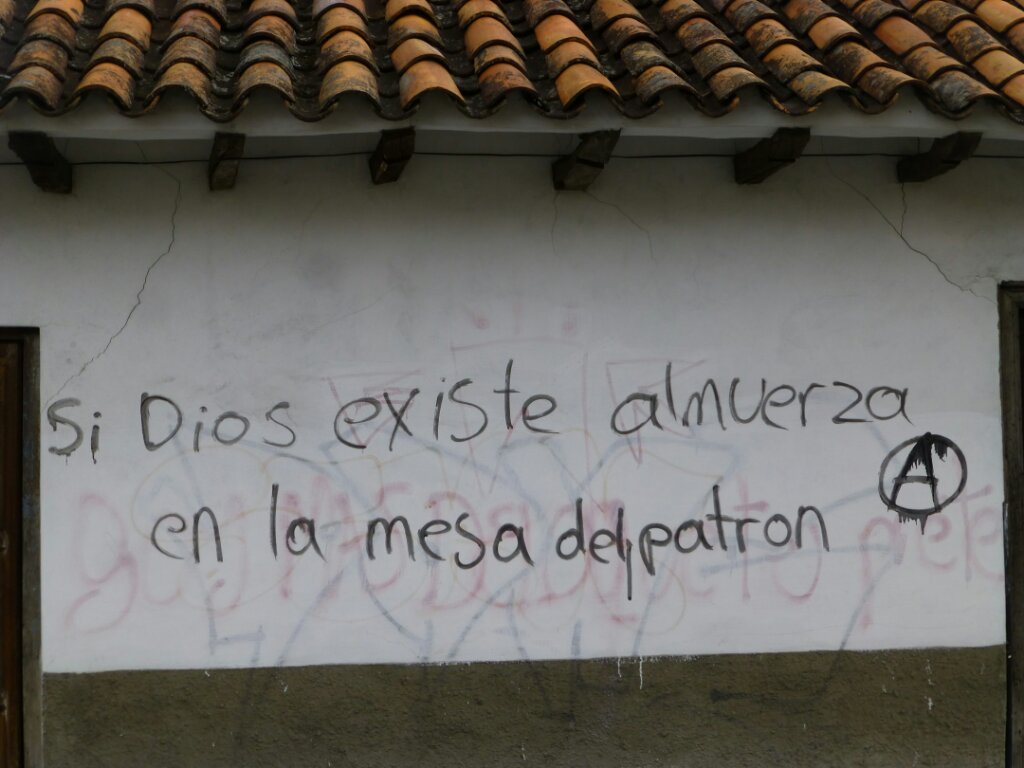 Si Dios existe almuerza
en la mesa del patron
A